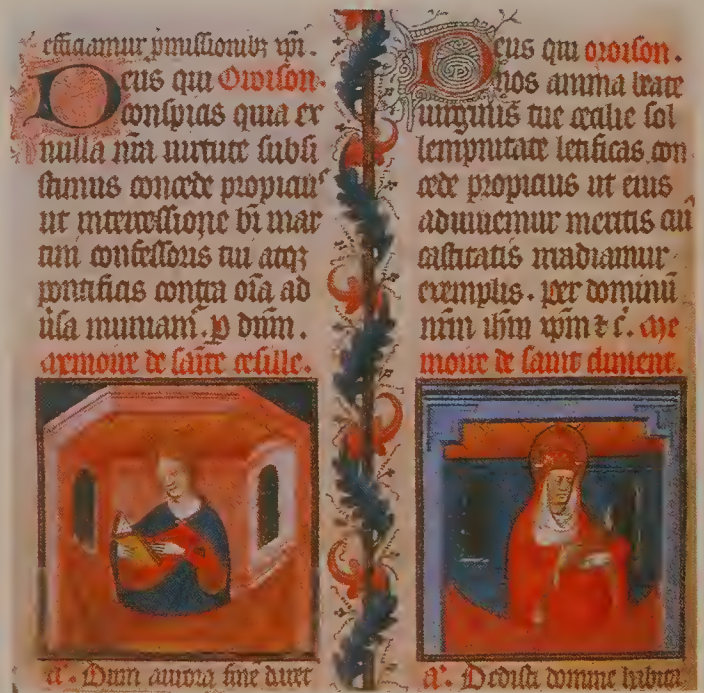 efficiamur p̄missionib; xp̄i.
Deus qui Oroison.
conspicis quia ex
nulla nr̄a uirtute subsi
stimus concede propicius
ut intercessione bi mar
tini confessoris tui atq;
pontificis contra oīa ad
uersa muniam̄. p dn̄m.
memoire de sainte cesille.
a'. Dum aurora fine daret
Deus qui oroison.
nos annua beate
uirginis tue cecilie sol
lempnitate letificas con
cede propicius ut eius
adiuuemur meritis cui'
castitatis irradiamur
exemplis. per dominū
nr̄m ihm̄ xp̄m ⁊ c̄. Me
moire de saint climent.
a'. Dedisti domine habitac